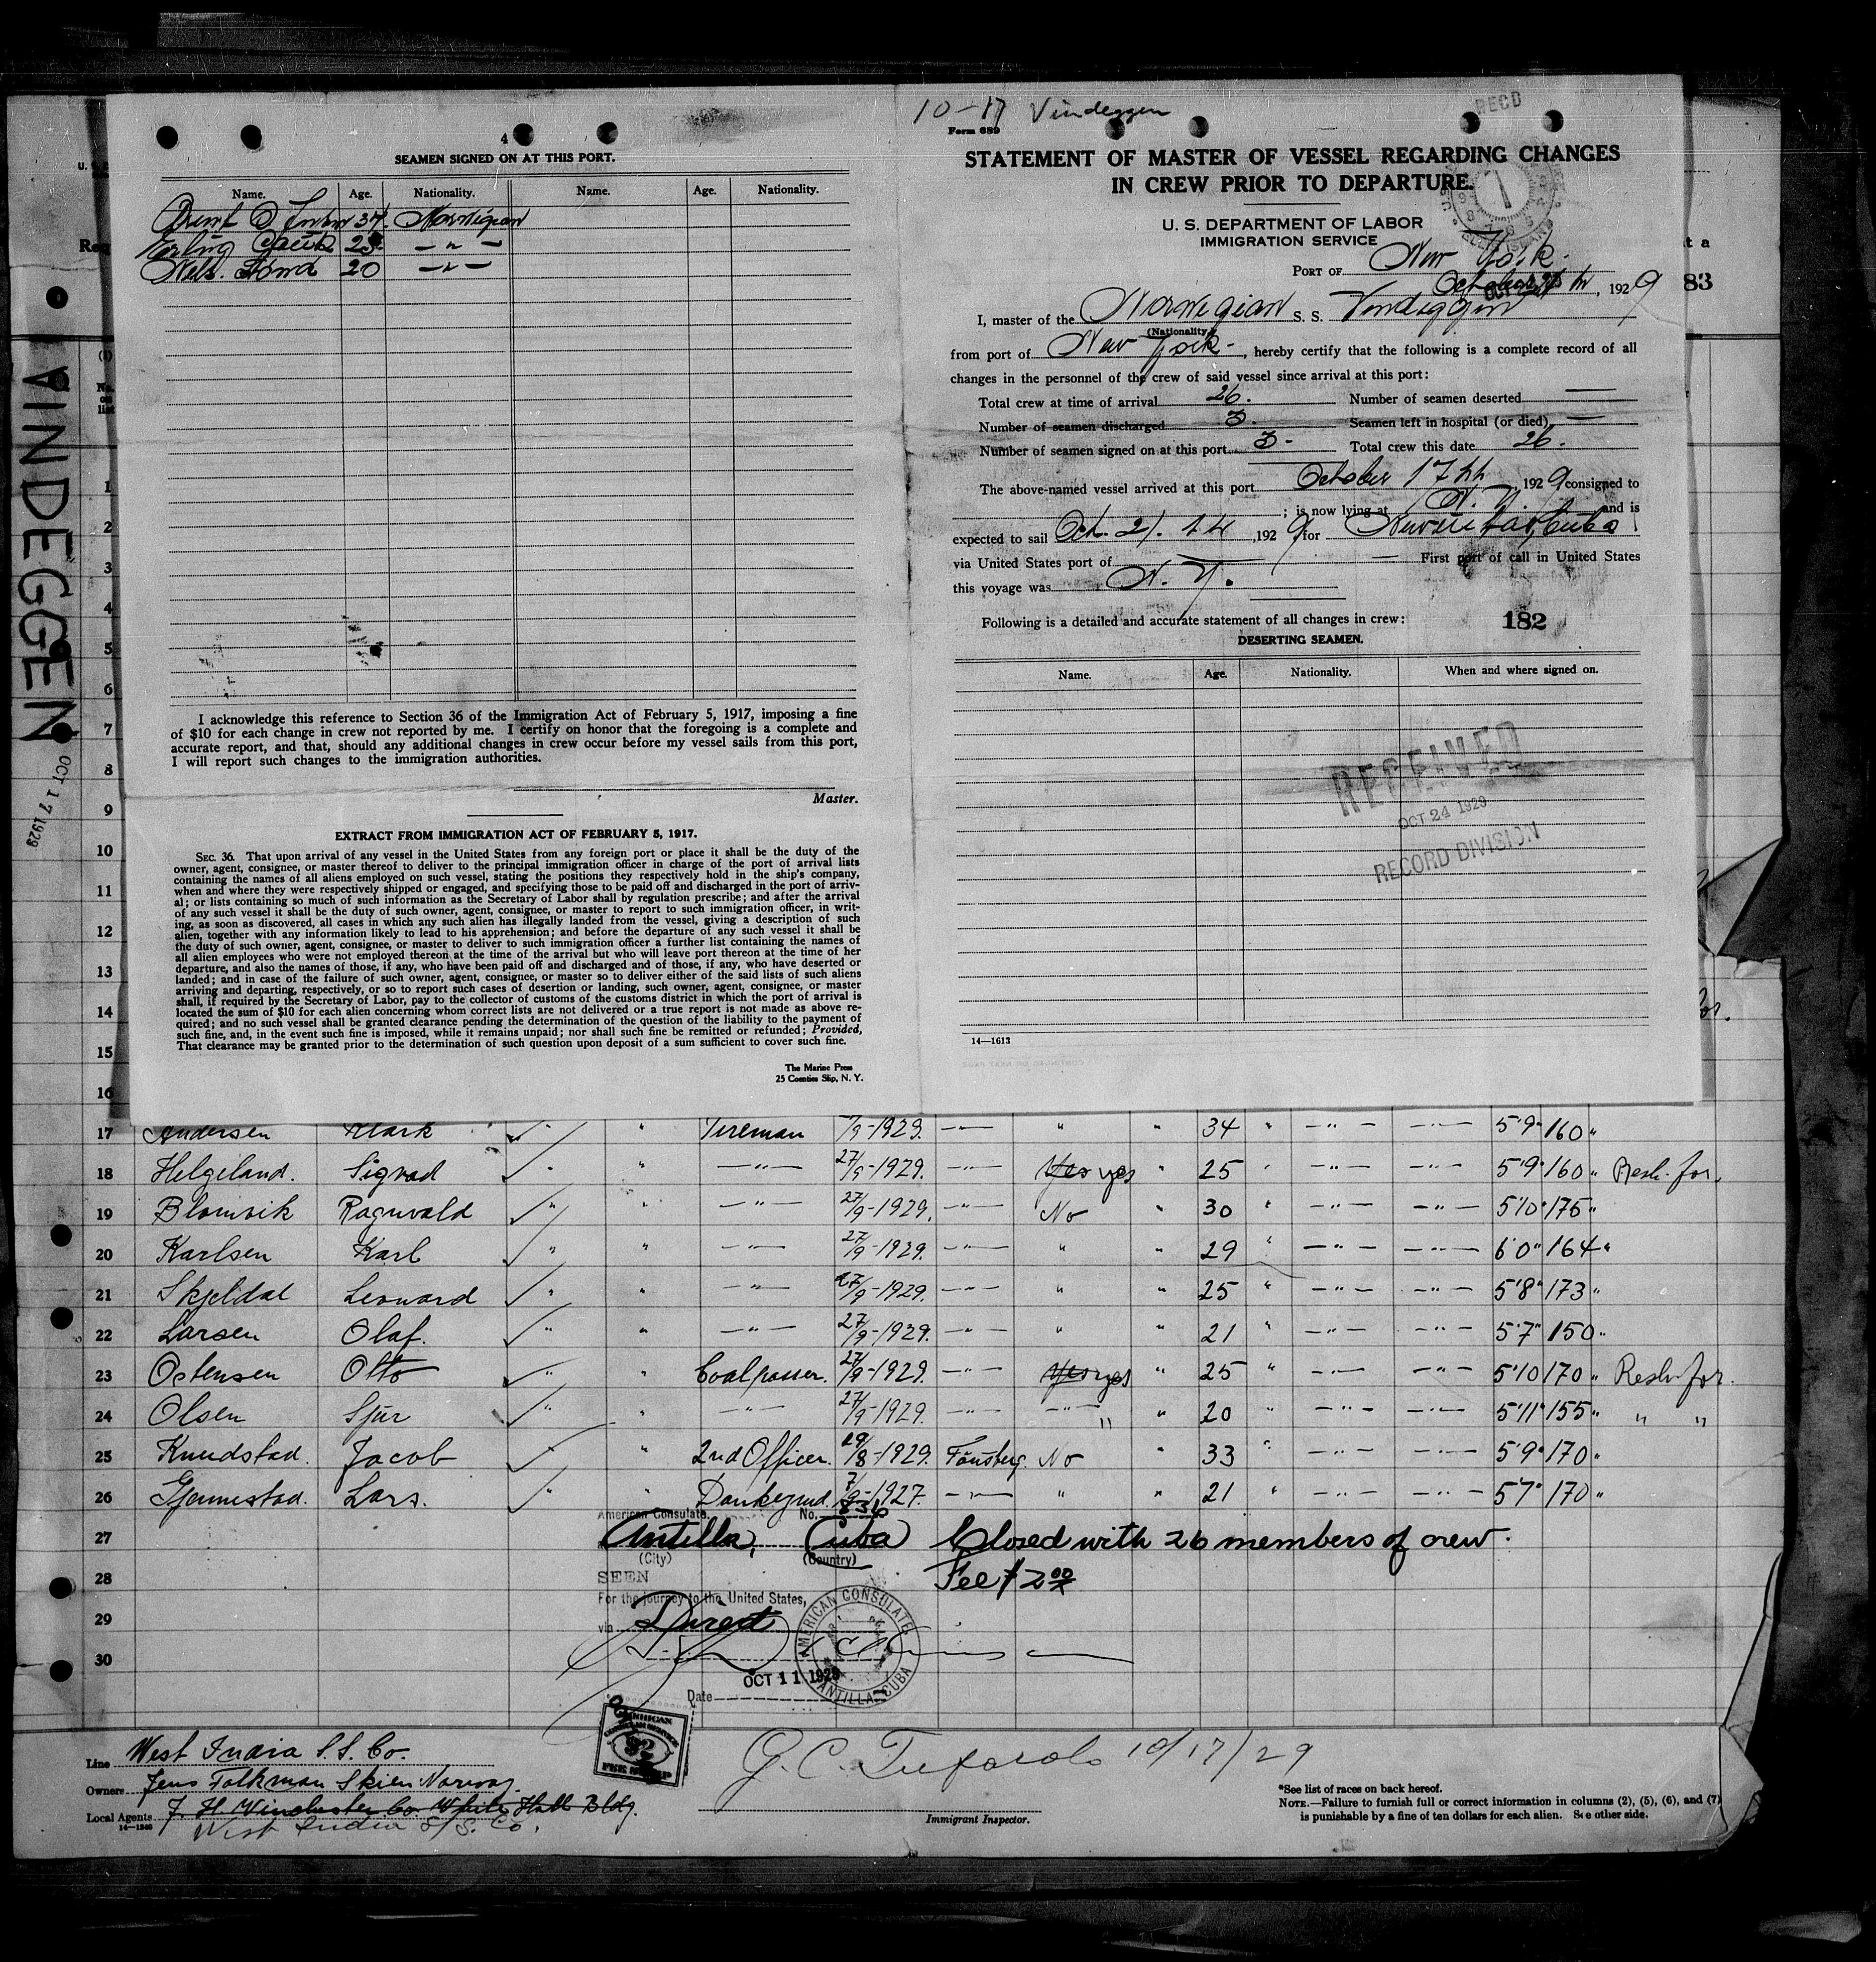 4
SEAMEN SIGNED ON AT THIS PORT.
Name. Age. Nationality. Name. Age. Nationality.
37 Norwegian
Erling 23 — " —
Nels. 20 — " —
I acknowledge this reference to Section 36 of the Immigration Act of February 5, 1917, imposing a fine
of $10 for each change in crew not reported by me. I certify on honor that the foregoing is a complete and
accurate report, and that, should any additional changes in crew occur before my vessel sails from this port,
I will report such changes to the immigration authorities.
Master.
EXTRACT FROM IMMIGRATION ACT OF FEBRUARY 5, 1917.
SEC. 36. That upon arrival of any vessel in the United States from any foreign port or place it shall be the duty of the
owner, agent, consignee, or master thereof to deliver to the principal immigration officer in charge of the port of arrival lists
containing the names of all aliens employed on such vessel, stating the positions they respectively hold in the ship's company,
when and where they were respectively shipped or engaged, and specifying those to be paid off and discharged in the port of arriv-
al; or lists containing so much of such information as the Secretary of Labor shall by regulation prescribe; and after the arrival
of any such vessel it shall be the duty of such owner, agent, consignee, or master to report to such immigration officer, in writ-
ing, as soon as discovered, all cases in which any such alien has illegally landed from the vessel, giving a description of such
alien, together with any information likely to lead to his apprehension; and before the departure of any such vessel it shall be
the duty of such owner, agent, consignee, or master to deliver to such immigration officer a further list containing the names of
all alien employees who were not employed thereon at the time of the arrival but who will leave port thereon at the time of her
departure, and also the names of those, if any, who have been paid off and discharged and of those, if any, who have deserted or
landed; and in case of the failure of such owner, agent, consignee, or master so to deliver either of the said lists of such aliens
arriving and departing, respectively, or so to report such cases of desertion or landing, such owner, agent, consignee, or master
shall, if required by the Secretary of Labor, pay to the collector of customs of the customs district in which the port of arrival is
located the sum of $10 for each alien concerning whom correct lists are not delivered or a true report is not made as above re-
quired; and no such vessel shall be granted clearance pending the determination of the question of the liability to the payment of
such fine, and, in the event such fine is imposed, while it remains unpaid; nor shall such fine be remitted or refunded; Provided,
That clearance may be granted prior to the determination of such question upon deposit of a sum sufficient to cover such fine.
The Marine Press
25 Coenties Slip, N. Y.
10-17 Vindeggen
RECD
Form 689
STATEMENT OF MASTER OF VESSEL REGARDING CHANGES
IN CREW PRIOR TO DEPARTURE.
U. S. DEPARTMENT OF LABOR
IMMIGRATION SERVICE
ELLIS ISLAND
PORT OF New York.
October , 1929
I, master of the Norwegian S. S. Vindeggen
(Nationality)
from port of New York , hereby certify that the following is a complete record of all
changes in the personnel of the crew of said vessel since arrival at this port:
Total crew at time of arrival 26. Number of seamen deserted —
Number of seamen discharged 3. Seamen left in hospital (or died) —
Number of seamen signed on at this port 3. Total crew this date 26.
The above-named vessel arrived at this port October 17th, 1929 consigned to
; is now lying at N. Y. and is
expected to sail Oct. 21. , 1929 for Cuba
via United States port of — First port of call in United States
this voyage was N. Y.
Following is a detailed and accurate statement of all changes in crew: 182
DESERTING SEAMEN.
Name. Age. Nationality. When and where signed on.
RECEIVED
OCT 24 1929
RECORD DIVISION
14—1613
83
VINDEGGEN
OCT 17 1929
1
2
3
4
5
6
7
8
9
10
11
12
13
14
15
16
17 Andersen Mark " " Fireman /9-1929. —"— " " 34 " — " — — " — 5'9" 160 "
18 Helgeland. Sigvad " " — " — 27/9-1929. —"— Yes yes " 25 " — " — — " — 5'9" 160 " Resh. for.
19 Blomvik Ragnvald " " — " — 27/9-1929. —"— No " 30 " — " — — " — 5'10" 175 "
20 Karlsen Karl " " — " — 27/9-1929. —"— " " 29 " — " — — " — 6'0" 164 "
21 Skjeldal Leonard " " — " — 27/9-1929. —"— " " 25 " — " — — " — 5'8" 173 "
22 Larsen Olaf. " " — " — 27/9-1929. —"— " " 21 " — " — — " — 5'7" 150 "
23 Ostensen Otto " " Coalpasser. 27/9-1929. —"— Yes yes " 25 " — " — — " — 5'10 170 " Resh. for.
24 Olsen Sjur " " — " — 27/9-1929. —"— — " — " 20 " — " — — " — 5'11" 155 " " "
25 Knudstad. Jacob " " 2nd Officer. 29/8-1929. Tönsberg. No " 33 " — " — — " — 5'9" 170 "
26 Gjennestad. Lars. " " Donkeymd. 7/9-1927. —"— " " 21 " — " — — " — 5'7" 170 "
American Consulate. No. 836
27 Antilla, Cuba Closed with 26 members of crew.
(City) (Country)
28 SEEN Fee $2.00
For the journey to the United States,
29 via Direct
AMERICAN CONSULATE ANTILLA, CUBA
30
Date OCT 11 1929
AMERICAN
CONSULAR SERVICE
$2
FEE STAMP
Line West India S.S. Co.
Owners Jens Folkman Skien Norway.
Local Agents F. H. Winchester Co. White Hall Bldg.
14—1240 West India S/S. Co.
G. C. Tufarolo 10/17/29
Immigrant Inspector.
*See list of races on back hereof.
NOTE.—Failure to furnish full or correct information in columns (2), (5), (6), and (7)
is punishable by a fine of ten dollars for each alien. See other side.